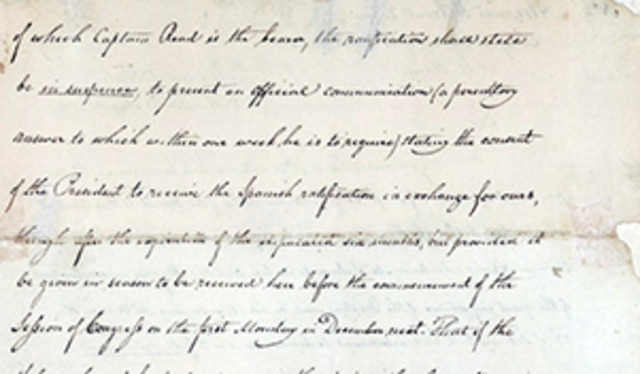 of which Captain Read is the bearer, the ratification shall still
be in suspence, to present an official communication (a peremptory
answer to which within one week he is to require) stating the consent
of the President to receive the Spanish ratification in exchange for ours,
though after the expiration of the stipulated six months, but provided it
be given in season to be received here before the commencement of the
Session of Congress on the first Monday in December next. That if the